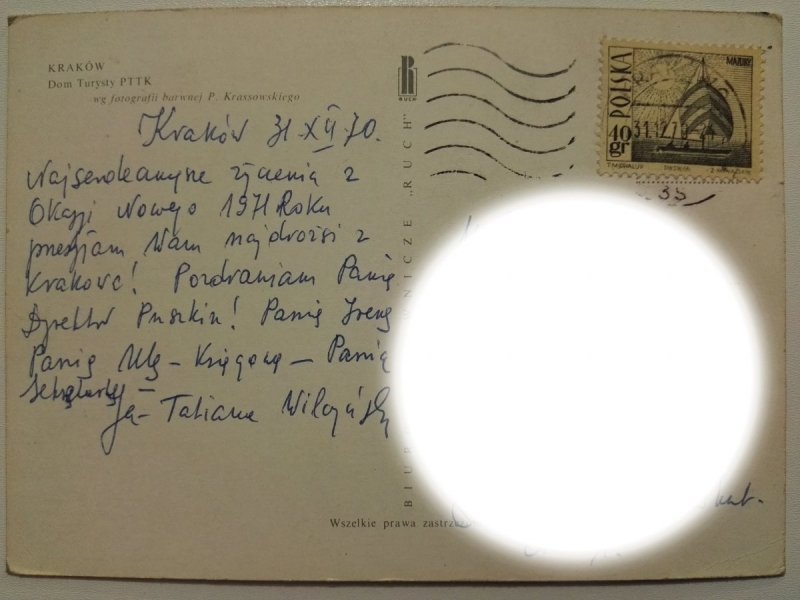 KRAKÓW
Dom Turysty PTTK
wg fotografii barwnej P. Krassowskiego
RUCH
POLSKA
MAZURY
40 gr
31.12.70
35
Kraków 31 XII 70.
Najserdeczniejsze życzenia z
Okazji Nowego 1971 Roku
przesyłam Wam najdrożsi z
Krakowa! Pozdrawiam Panią
Dyrektor Puszkin! Panią Irenę
Panią Ulę – Księgową – Panią
Ja – Tatiana
"RUCH"
Wszelkie prawa